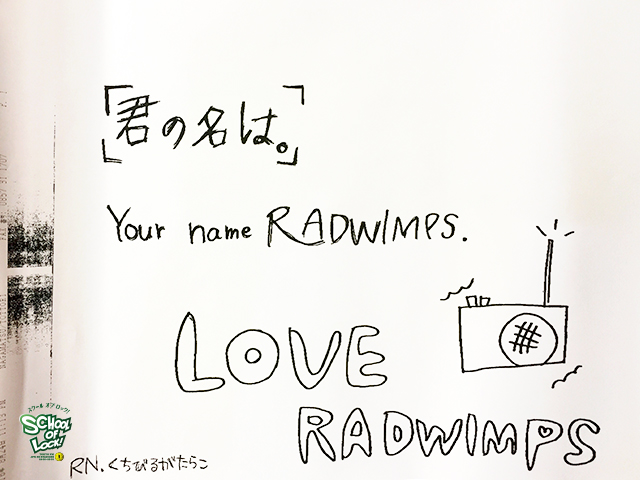 「君の名は。」
Your name RADWIMPS.
LOVE
RADWIMPS
スクール オブ ロック!
SCHOOL
OF
LOCK!
RN.くちびるがたらこ